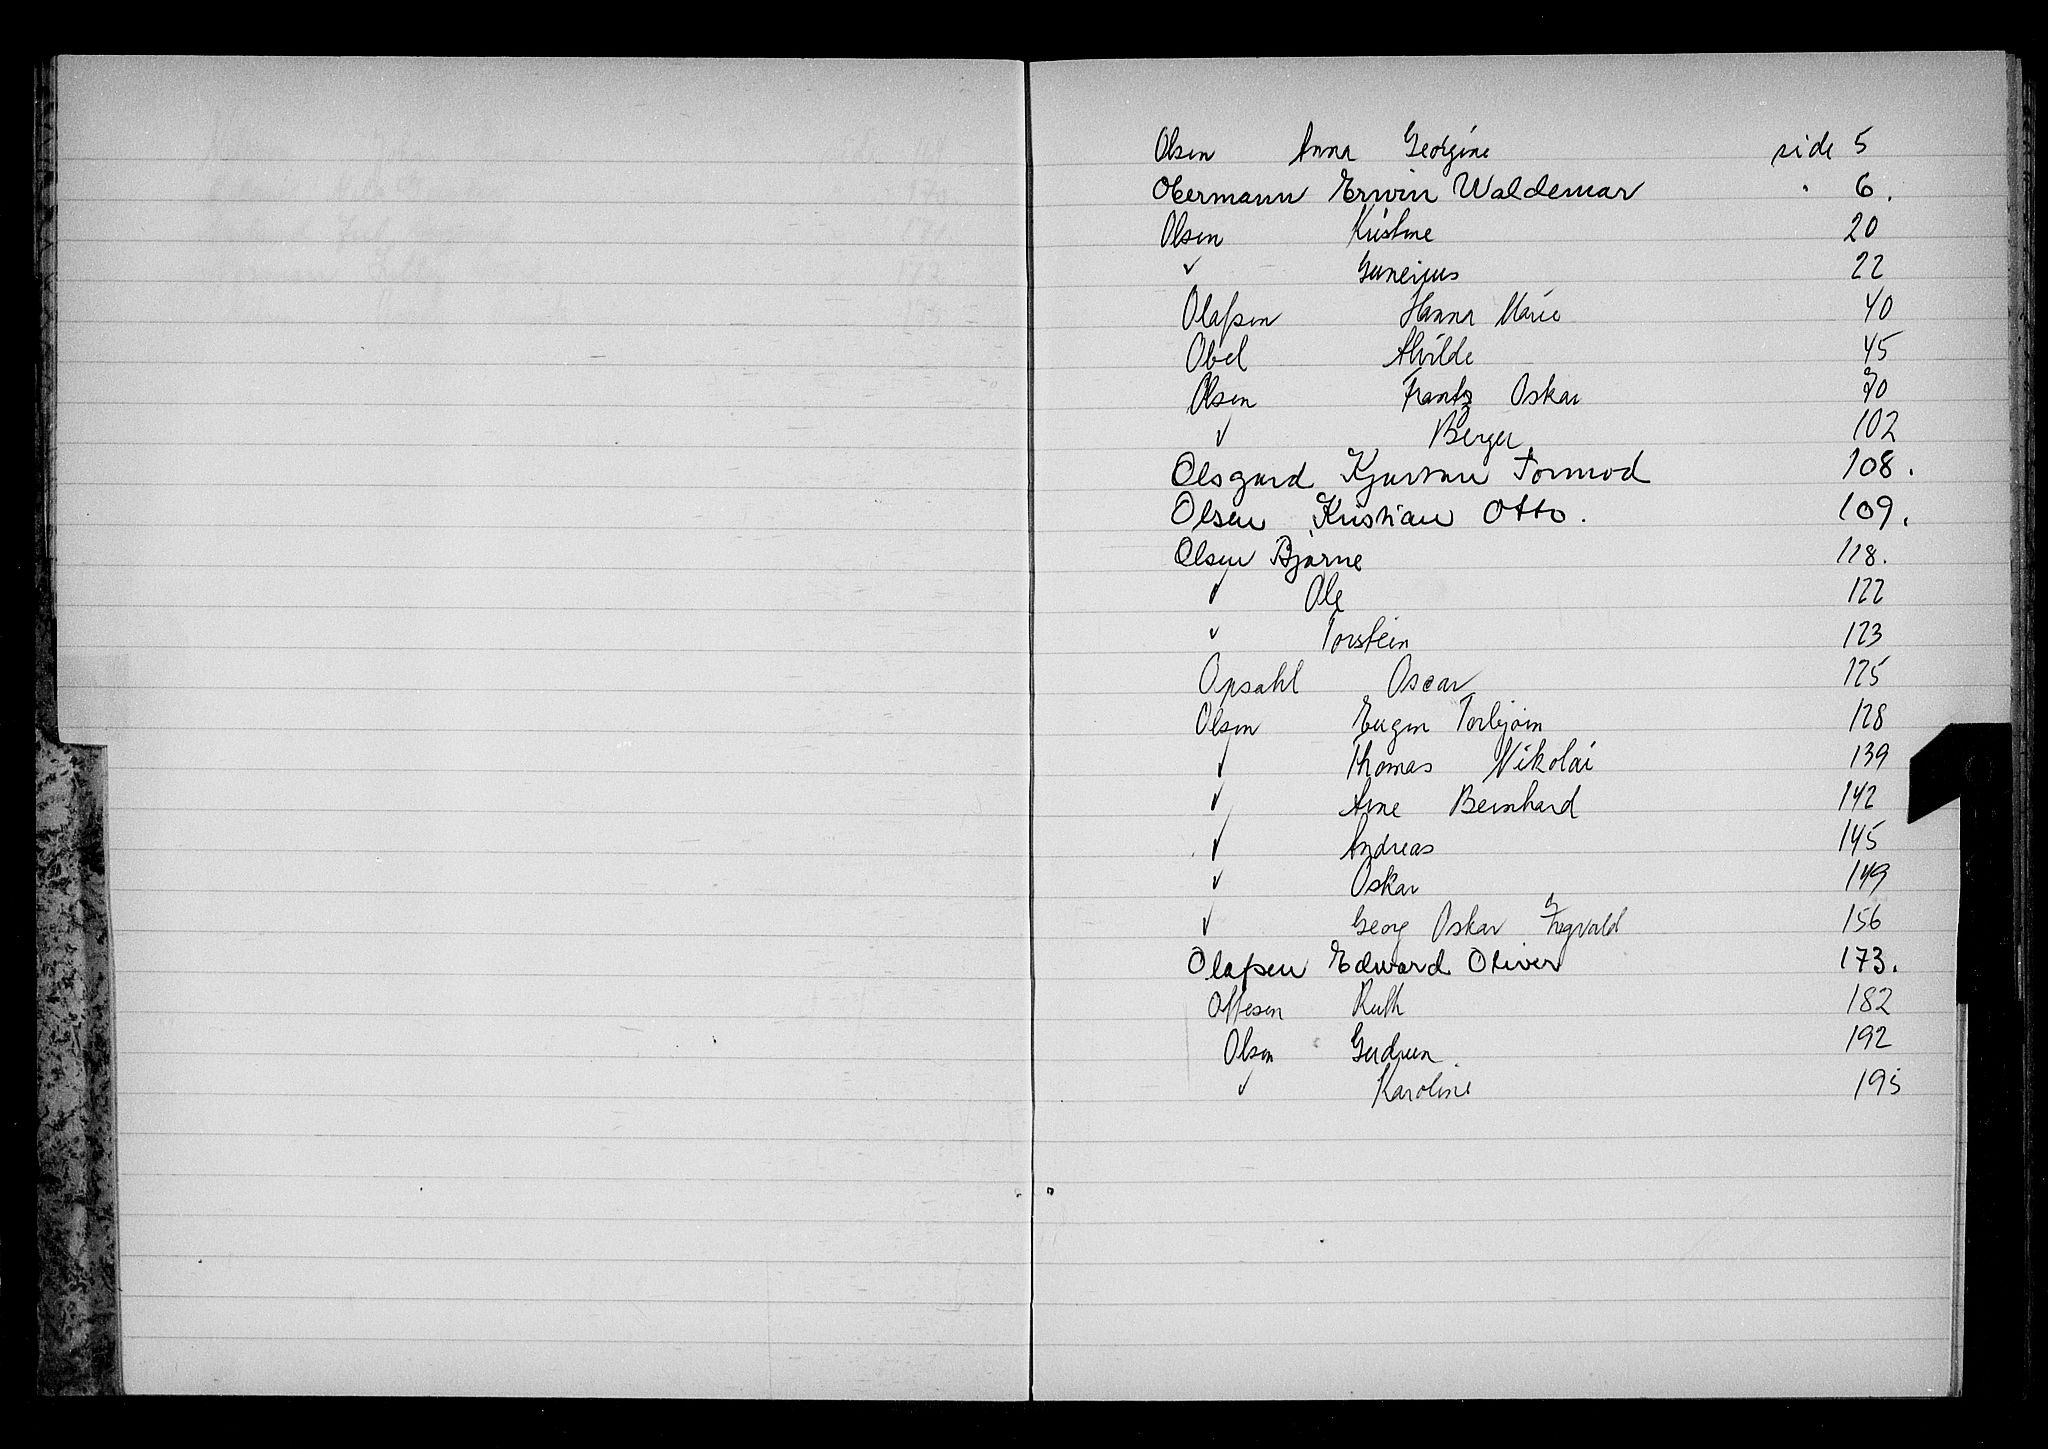 Olsen Anna Georgine side 5
Obermann Erwin Waldemar " 6.
Olsen Kristine 20
" Gunerius 22
Olafsen Hanna Marie 40
Obel Alvilde 45
Olsen Frantz Oskar 70
" Berger 102
Olsgard Kjartan Tormod 108.
Olsen Kristian Otto. 109.
Olsen Bjarne 118.
" Ole 122
" Torstein 123
Opsahl Oscar 125
Olsen Eugen Torbjørn 128
" Thomas Nikolai 139
" Arne Bernhard 142
" Andreas 145
" Oskar 149
" Georg Oskar Ingvald 156
Olafsen Edward Oliver 173.
Ottesen Ruth 182
Olsen Gudrun 192
" Karoline 195